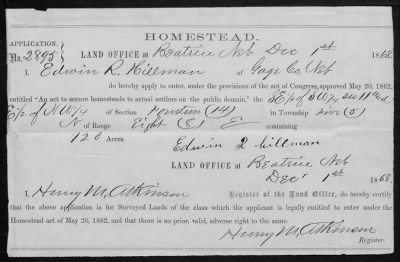 HOMESTEAD.
APPLICATION.
No. 2895
LAND OFFICE at Beatrice Neb Dec 1st 1868.
I, Edwin R. Hillman of Gage Co, Neb
do hereby apply to enter, under the provisions of the act of Congress approved May 20, 1862,
entitled "An act to secure homesteads to actual settlers on the public domain," the SE/4 of SW/4
E/2 of NW/4 of Section Fourteen (14) in Township five (5)
N of Range Eight (8) E containing
120 Acres.
Edwin R Hillman
LAND OFFICE at Beatrice Neb
Decr 1st 1868.
I, Henry M. Atkinson Register of the Land Office, do hereby certify
that the above application is for Surveyed Lands of the class which the applicant is legally entitled to enter under the
Homestead act of May 20, 1862, and that there is no prior, valid, adverse right to the same.
Henry M. Atkinson
Register.